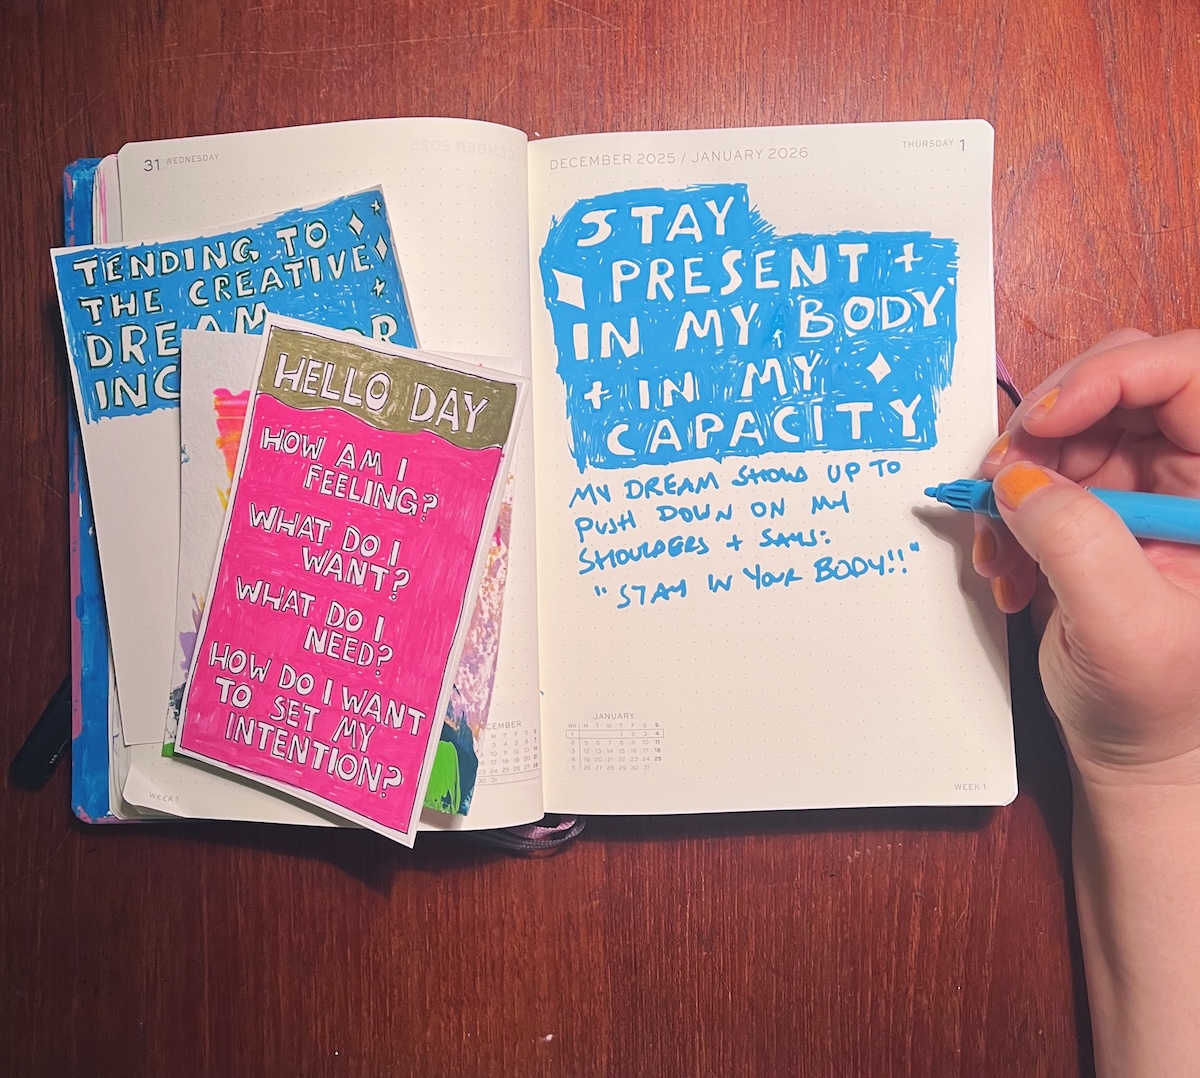 31 WEDNESDAY
TENDING TO
THE CREATIVE
DREAM
INC
HELLO DAY
HOW AM I
FEELING?
WHAT DO I
WANT?
WHAT DO I
NEED?
HOW DO I WANT
TO SET MY
INTENTION?
WEEK 1
DECEMBER 2025 / JANUARY 2026
THURSDAY 1
STAY
PRESENT +
IN MY BODY
+ IN MY
CAPACITY
MY DREAM SHOWS UP TO
PUSH DOWN ON MY
SHOULDERS + SAYS:
"STAY IN YOUR BODY!!"
JANUARY
WK M T W T F S S
1 1 2 3 4
2 5 6 7 8 9 10 11
3 12 13 14 15 16 17 18
4 19 20 21 22 23 24 25
5 26 27 28 29 30 31
WEEK 1